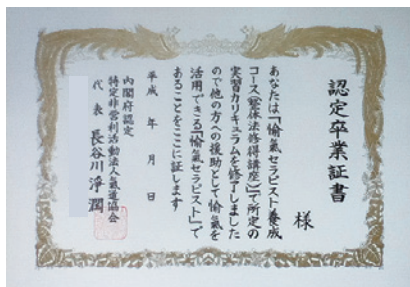 認定卒業証書
様
あなたは「愉氣セラピスト養成
コース（整体法修得講座）」で所定の
実習カリキュラムを修了しました
ので他の方への援助として愉氣を
活用できる「愉氣セラピスト」で
あることをここに証します
平成　年　月　日
内閣府認定
特定非営利活動法人氣道協会
代表 長谷川淨潤